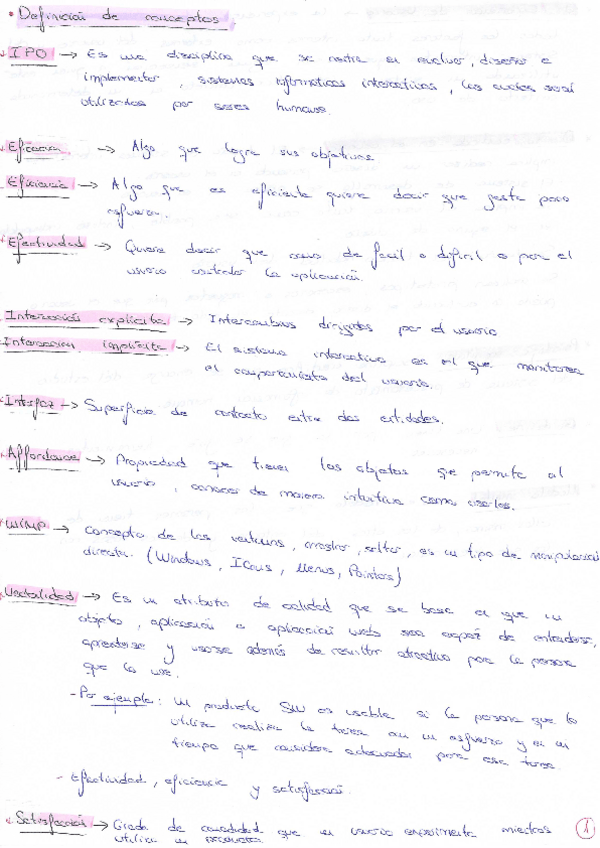 • Definición de conceptos
IPO → Es una disciplina que se centra en evaluar, diseñar e
implementar, sistemas informáticos interactivos, los cuales serán
utilizados por seres humanos.
Eficacia → Algo que logra sus objetivos
Eficiencia → Algo que es eficiente quiere decir que gasta pocos
esfuerzos.
Efectividad → Quiere decir que de facil o dificil es para el
usuario controlar la aplicación.
Interacción explícita → Intercambios dirigidos por el usuario
Interacción implícita → El sistema interactivo es el que monitorea
el comportamiento del usuario.
Interfaz → Superficie de contacto entre dos entidades.
Affordance → Propiedad que tienen los objetos que permite al
usuario, conocer de manera intuitiva como usarlos.
WIMP → Concepto de las ventanas, arrastrar, soltar, es un tipo de manipulación
directa. (Windows, Icons, Menus, Pointers)
Usabilidad → Es un atributo de calidad que se basa en que un
objeto, aplicación o aplicación web sea capaz de entenderse,
aprenderse y usarse además de resultar atractivo para la persona
que lo use.
- Por ejemplo: Un producto SW es usable si la persona que lo
utiliza realiza la tarea con un esfuerzo y en un
tiempo que considera adecuados para esa tarea.
- Efectividad, eficiencia y satisfacción.
Satisfacción → Grado de comodidad que un usuario experimenta mientras
utiliza un producto
1